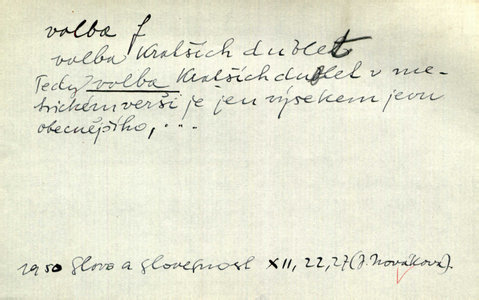 volba f
volba kratších dublet
Tedy volba kratších dublet v me-
trickém verši je jen výsekem jevu
obecnějšího, ...
1950 Slovo a slovesnost XII, 22, 27 (J. Nováková).